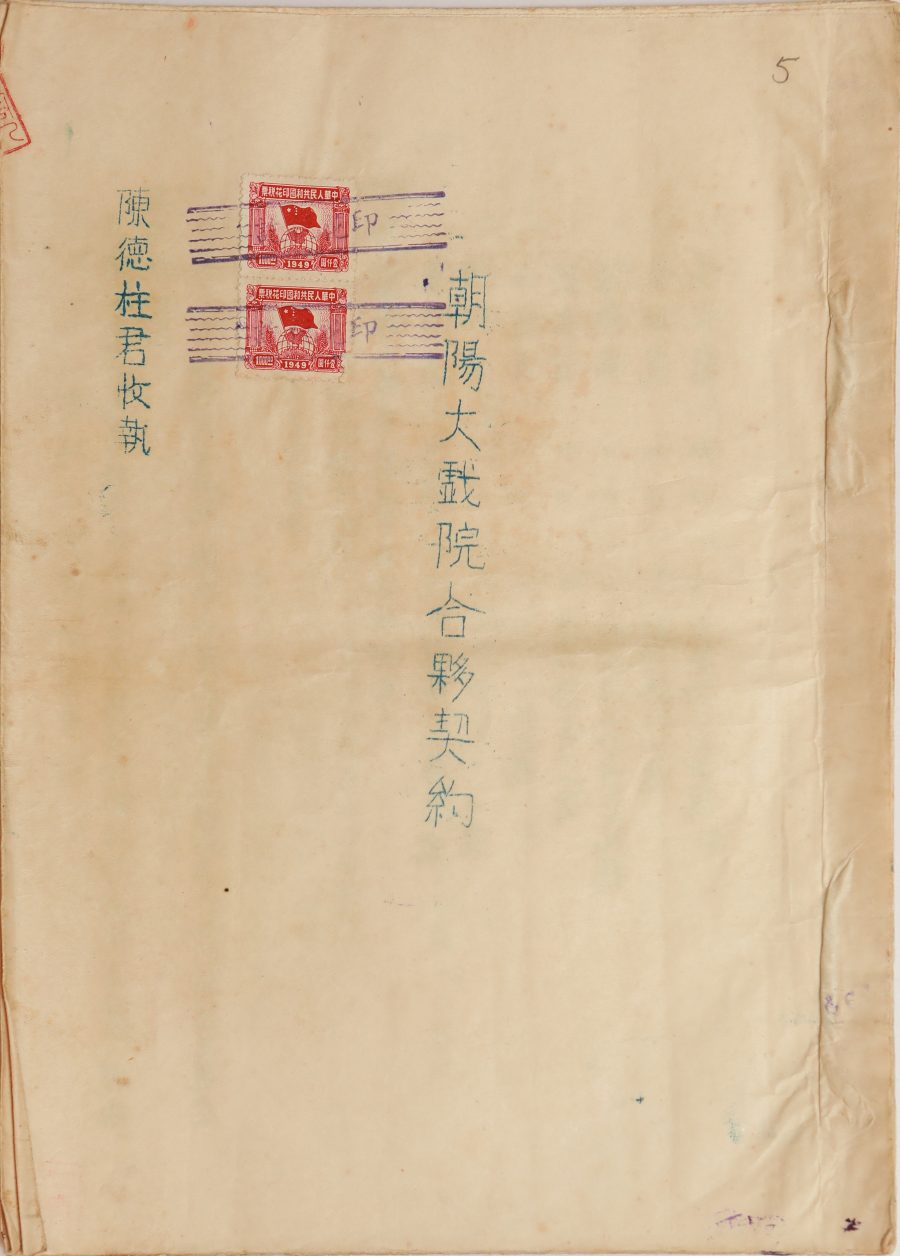 5
朝陽大戲院合夥契約
中華人民共和國印花稅票
1000
1949
壹仟圓
印
中華人民共和國印花稅票
1000
1949
壹仟圓
印
陳德柱君收執